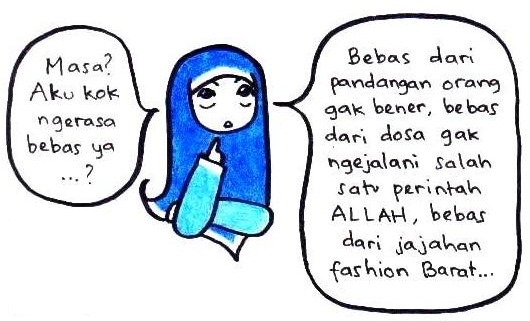 Masa?
Aku kok
ngerasa
bebas ya
...?
Bebas dari
pandangan orang
gak bener, bebas
dari dosa gak
ngejalani salah
satu perintah
ALLAH, bebas
dari jajahan
fashion Barat...